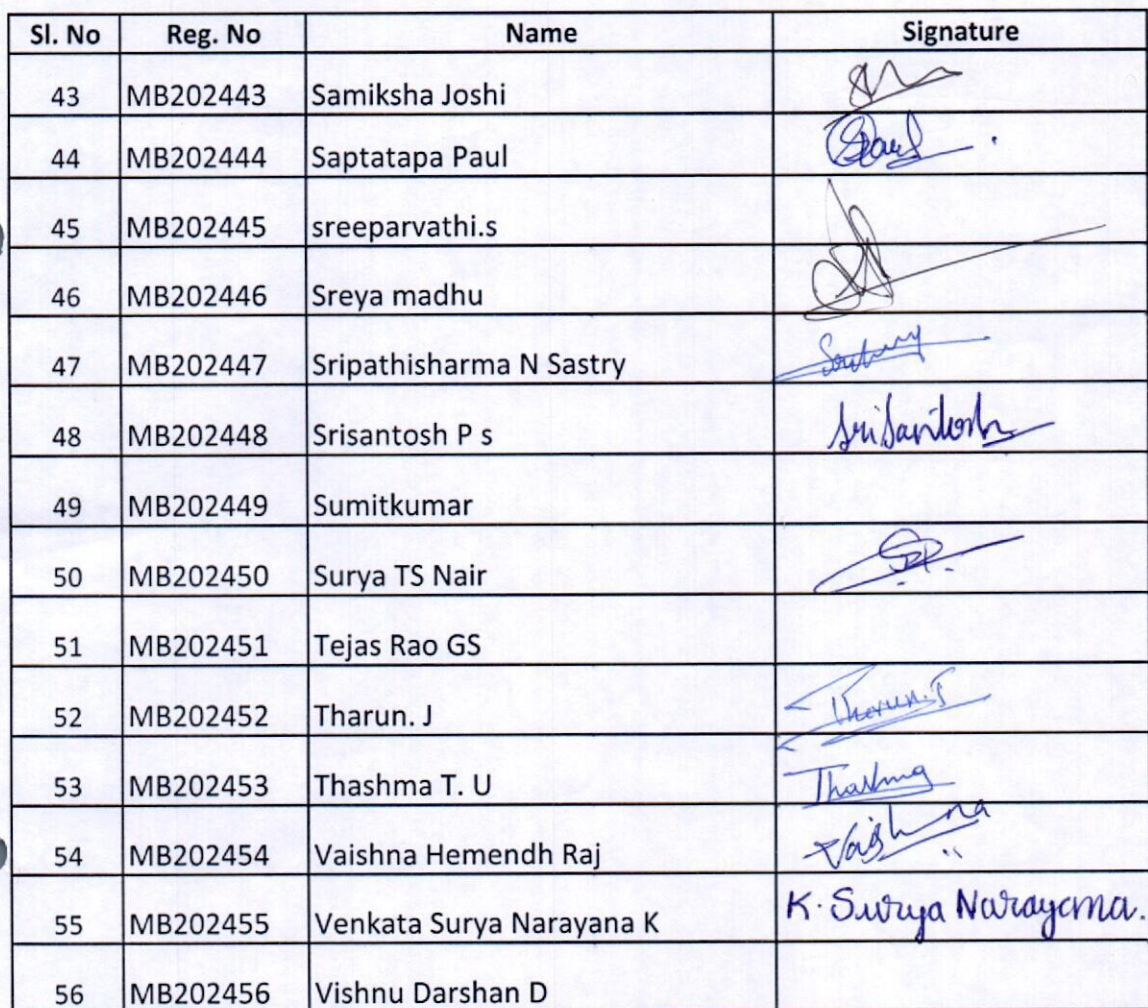 Sl. No Reg. No Name Signature
43 MB202443 Samiksha Joshi
44 MB202444 Saptatapa Paul
45 MB202445 sreeparvathi.s
46 MB202446 Sreya madhu
47 MB202447 Sripathisharma N Sastry
48 MB202448 Srisantosh P s SriSantosh
49 MB202449 Sumitkumar
50 MB202450 Surya TS Nair
51 MB202451 Tejas Rao GS
52 MB202452 Tharun. J Tharun.J
53 MB202453 Thashma T. U Thashma
54 MB202454 Vaishna Hemendh Raj Vaishna
55 MB202455 Venkata Surya Narayana K K. Surya Narayana.
56 MB202456 Vishnu Darshan D